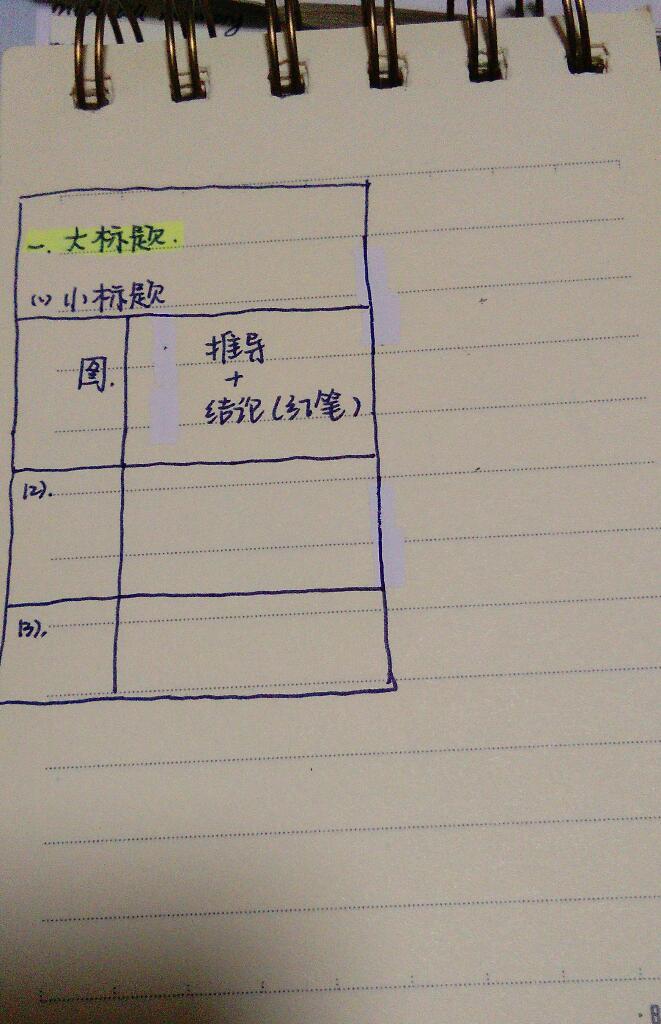 一. 大标题.
(1) 小标题
图.
推导
+
结论(红笔)
(2).
(3).